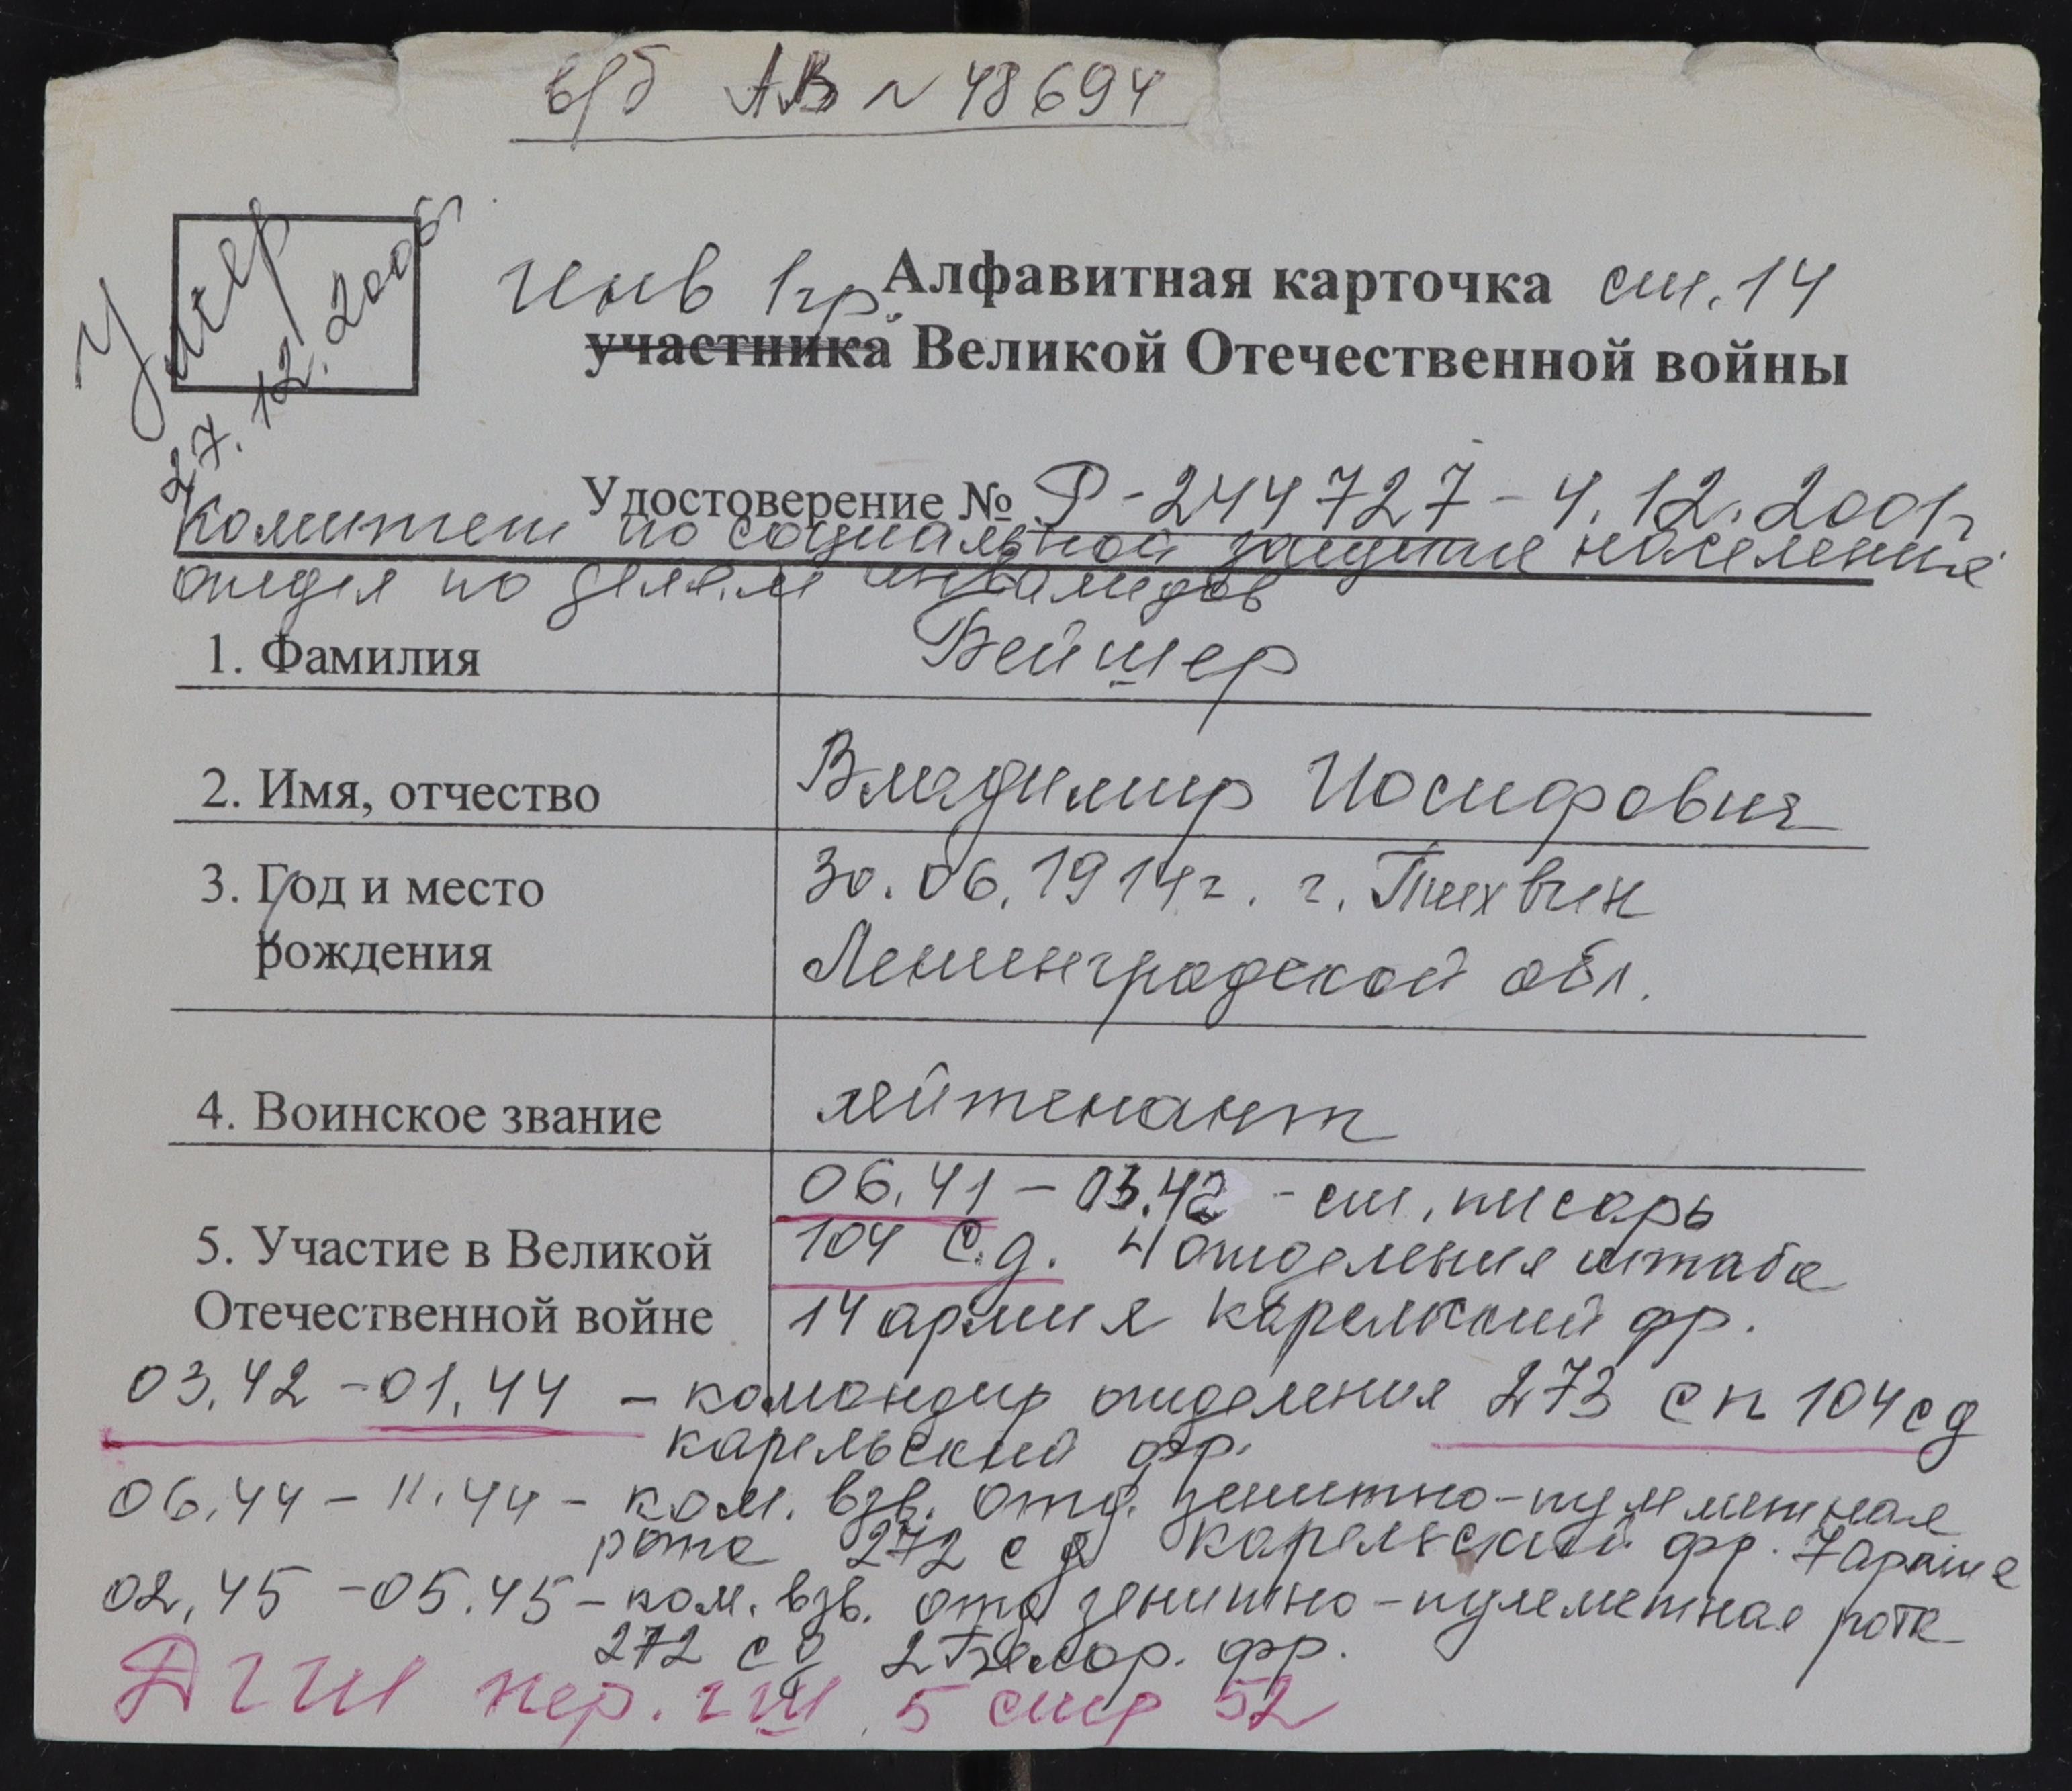 в/б АВ № 48694
умер
27.12.2006г
инв 1гр. Алфавитная карточка ст.14
участника Великой Отечественной войны
Удостоверение № Р-244727-4.12.2001г
Комитет по социальной защите населения
отдел по делам инвалидов
1. Фамилия Бейшер
2. Имя, отчество Владимир Иосифович
3. Год и место 30.06.1914г. г. Тихвин
рождения Ленинградской обл.
4. Воинское звание лейтенант
06.41 – 03.42 - ст. писарь
5. Участие в Великой 104 с.д. 4 отделения штаба
Отечественной войне 14 армия карельский фр.
03.42 – 01.44 – командир отделения 273 сп 104 сд
карельский фр.
06.44 – 11.44 – ком. взв. отд. зенитно-пулеметная
рота 272 сд карельский фр. 7 армия
02.45 – 05.45 – ком. взв. отд зенитно-пулеметная рота
272 сд 2 Белор. фр.
ДГШ пер. 5 стр 52